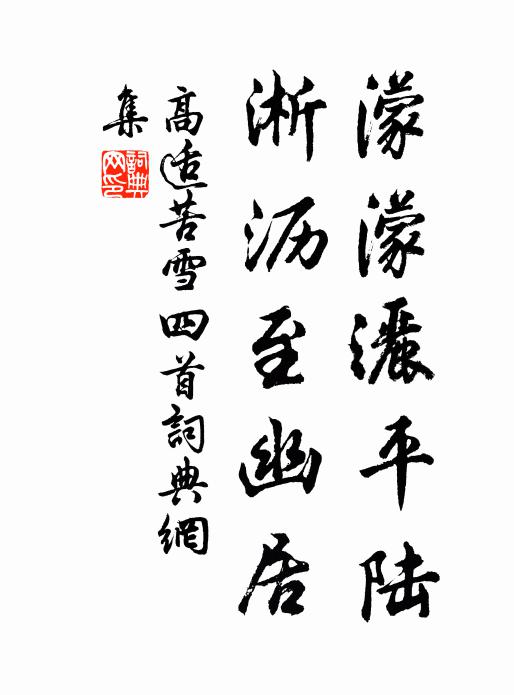 濛濛灑平陆
淅沥至幽居
高适苦雪四首詞典網
集
詞典网印